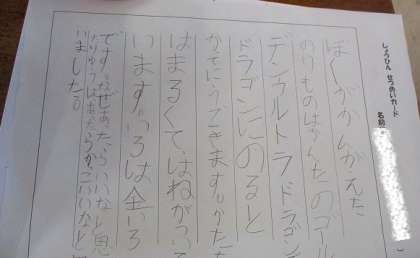 しょうひん せつめいカード
名前
ぼくがかんがえた
のりものは、
ゴール
デンウルトラドラゴン
ドラゴンにのると
かってにうごきます。かた
はまるくて、はねがつい
います。いろは金いろ
です。なぜあったらいいなと思
りゆうは
かっこいいなと
いました。